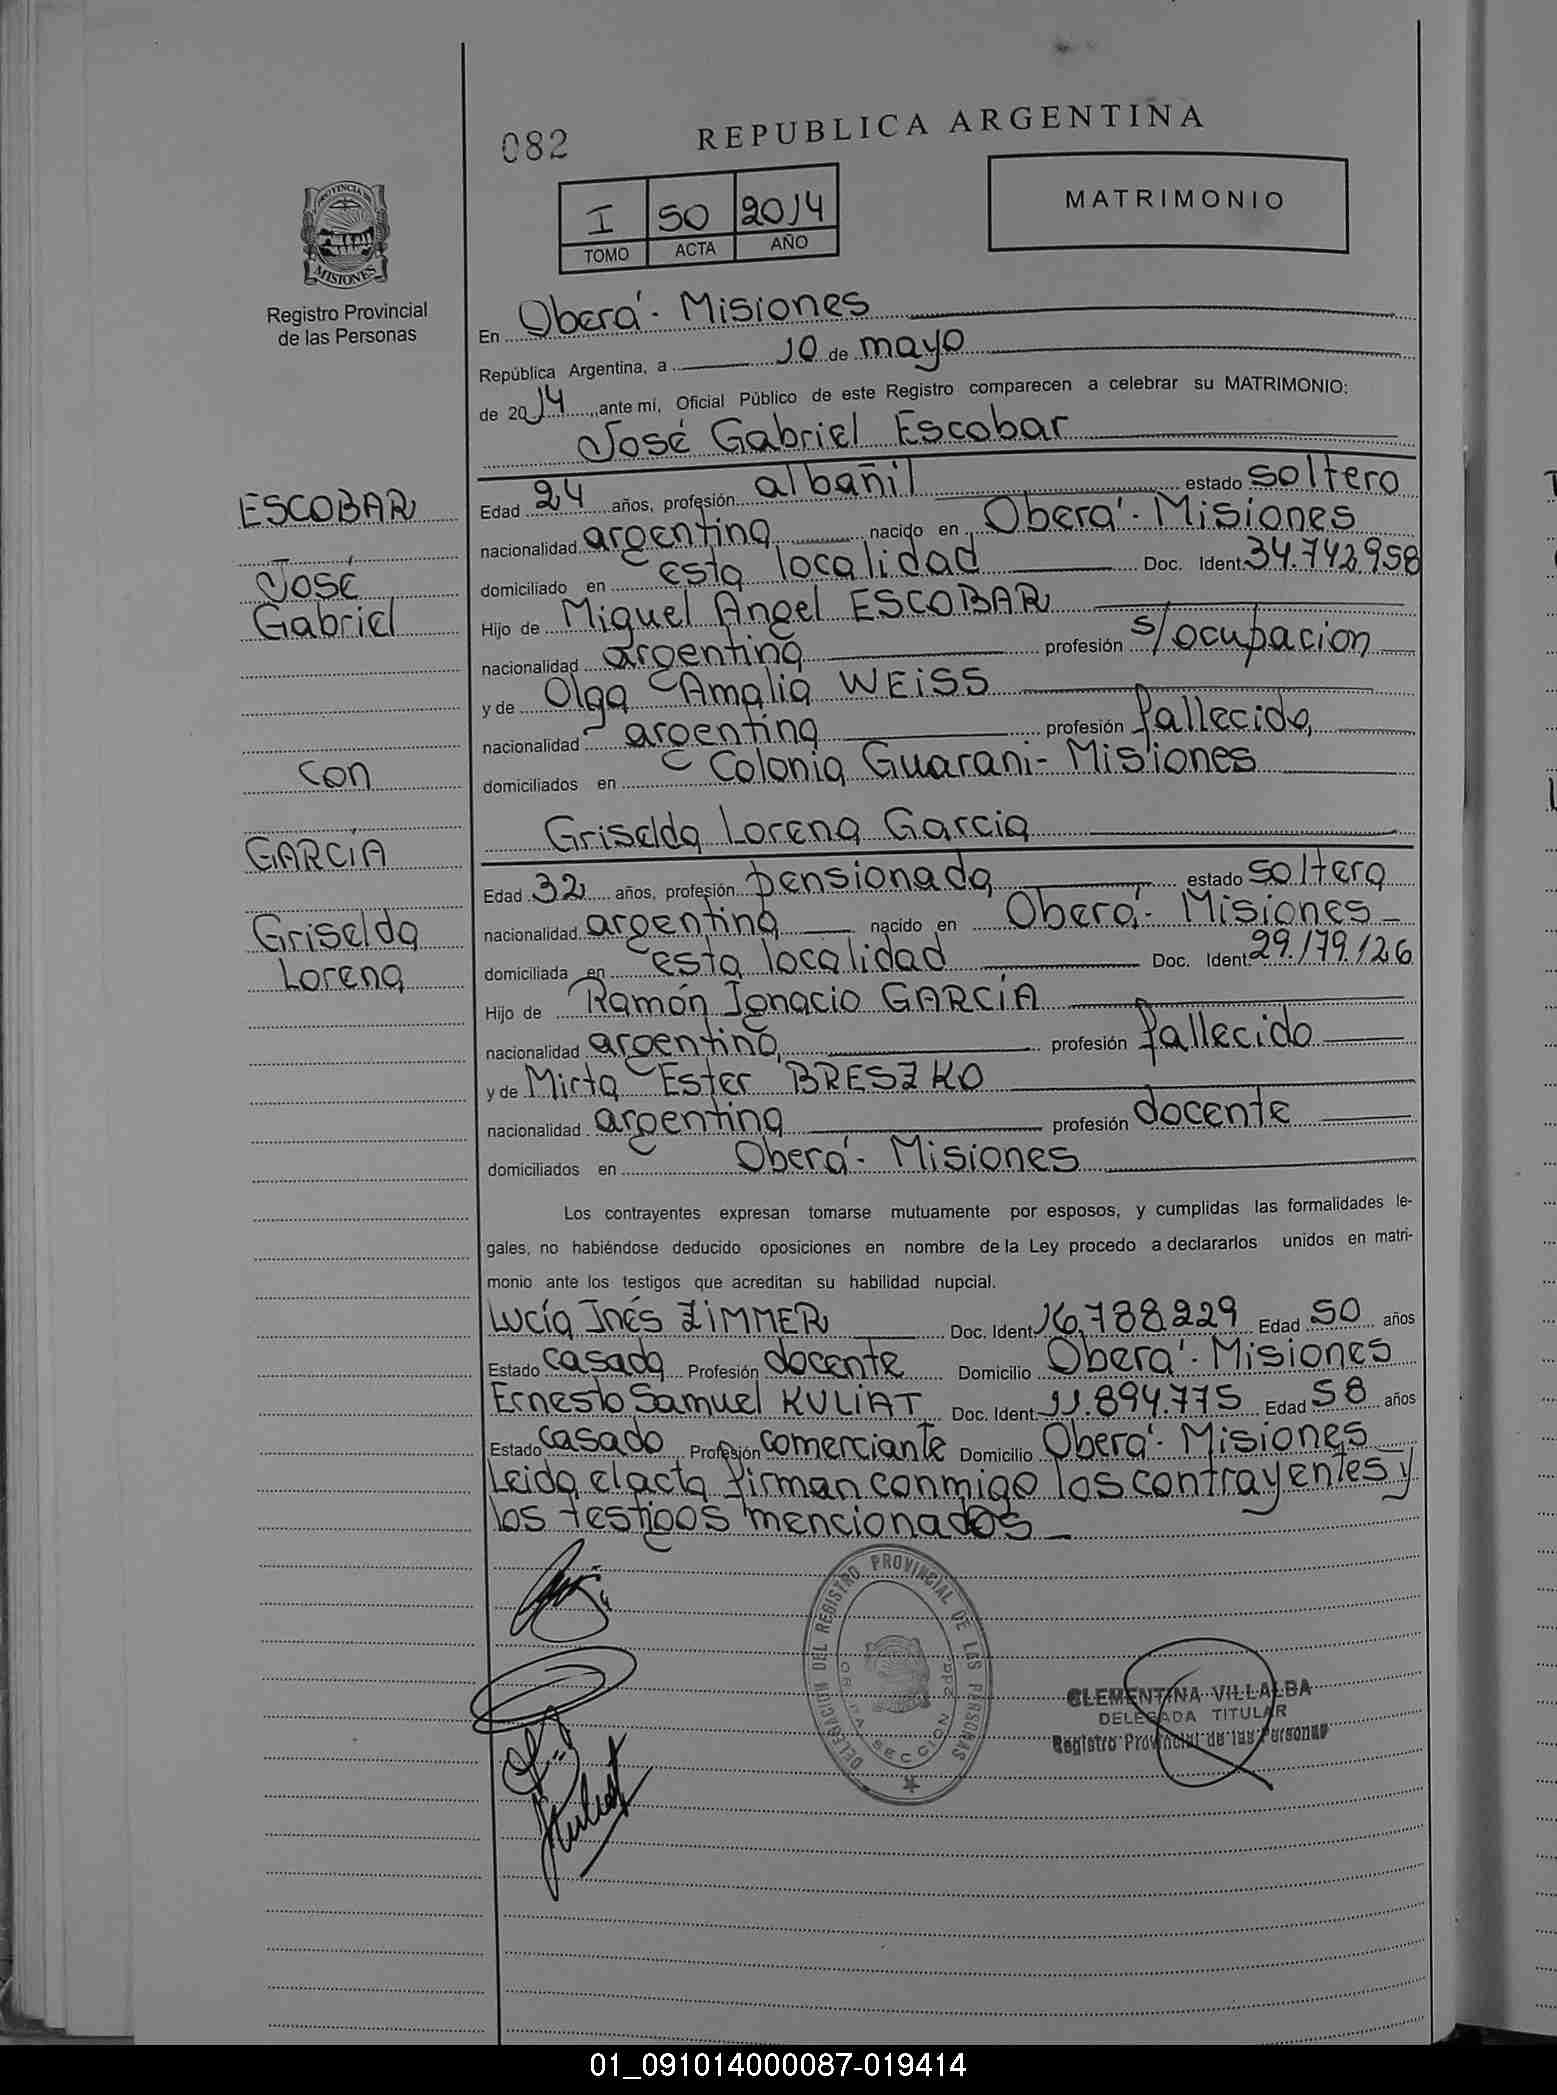 082
REPUBLICA ARGENTINA
PROVINCIA DE
MISIONES
Registro Provincial
de las Personas
I 50 2014
TOMO ACTA AÑO
MATRIMONIO
En Oberá - Misiones
República Argentina, a 10 de mayo
de 2014, ante mi, Oficial Público de este Registro comparecen a celebrar su MATRIMONIO:
José Gabriel Escobar
ESCOBAR
José
Gabriel
Edad 24 años, profesión albañil estado soltero
nacionalidad argentina nacido en Oberá - Misiones
domiciliado en esta localidad Doc. Ident. 34.742.958
Hijo de Miguel Angel ESCOBAR
nacionalidad argentina profesión s/ocupacion
y de Olga Amalia WEISS
nacionalidad argentina profesión fallecida
domiciliados en Colonia Guarani - Misiones
con
Griselda Lorena Garcia
GARCÍA
Griselda
Lorena
Edad 32 años, profesión pensionada estado soltera
nacionalidad argentina nacido en Oberá - Misiones
domiciliada en esta localidad Doc. Ident. 29.179.126
Hijo de Ramón Ignacio GARCÍA
nacionalidad argentino profesión fallecido
y de Mirta Ester BRESZKO
nacionalidad argentina profesión docente
domiciliados en Oberá - Misiones
Los contrayentes expresan tomarse mutuamente por esposos, y cumplidas las formalidades le-
gales, no habiéndose deducido oposiciones en nombre de la Ley procedo a declararlos unidos en matri-
monio ante los testigos que acreditan su habilidad nupcial.
Lucía Inés ZIMMER Doc. Ident. 16.788.229 Edad 50 años
Estado casada Profesión docente Domicilio Oberá - Misiones
Ernesto Samuel KULIAT Doc. Ident. 11.894.775 Edad 58 años
Estado casado Profesión comerciante Domicilio Oberá - Misiones
Leida el acta firman conmigo los contrayentes y
los testigos mencionados
DELEGACION DEL REGISTRO PROVINCIAL DE LAS PERSONAS
SECCION 2da
CLEMENTINA VILLALBA
DELEGADA TITULAR
Registro Provincial de las Personas
Kuliat
01_091014000087-019414